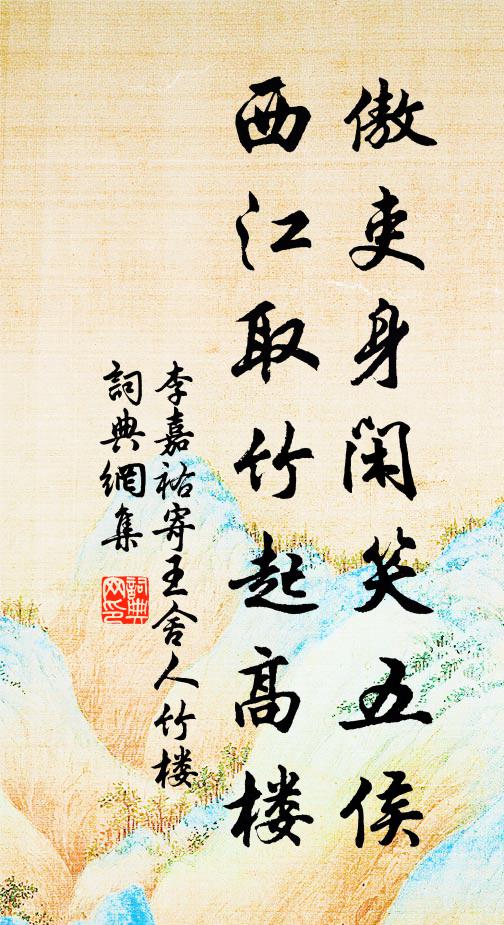 傲吏身闲笑五侯
西江取竹起高楼
李嘉祐寄王舍人竹楼
詞典網集
詞典網印